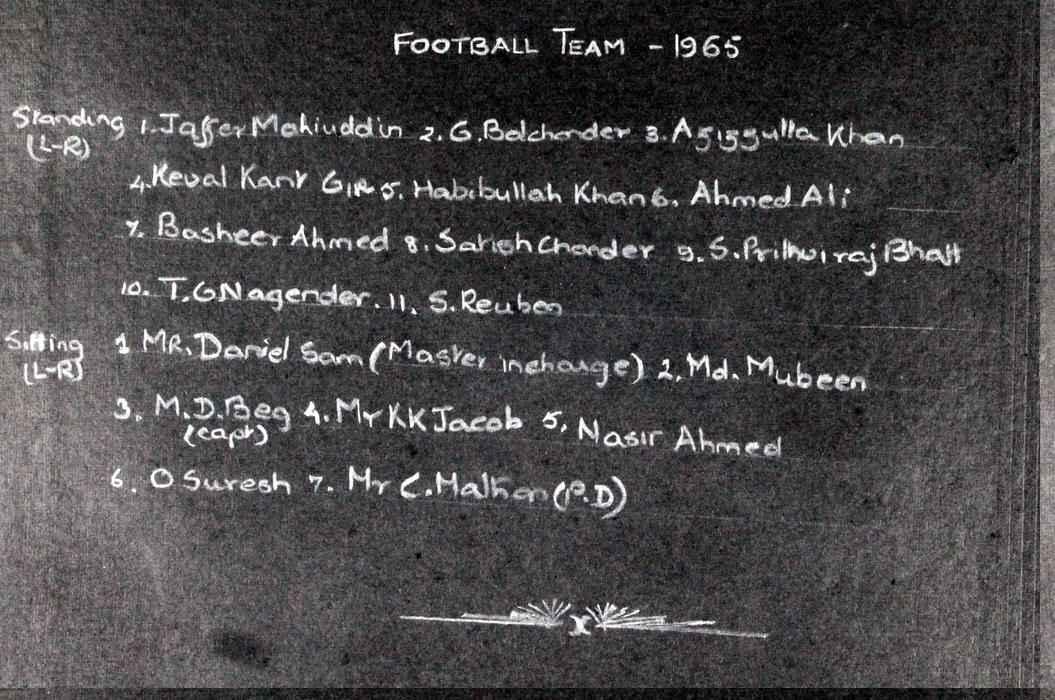 FOOTBALL TEAM - 1965
Standing 1. Jaffer Mohiuddin 2. G. Balchander 3. Azizzulla Khan
(L-R)
4. Keval Kant Gir 5. Habibullah Khan 6. Ahmed Ali
7. Basheer Ahmed 8. Satish Chander 9. S. Prithviraj Bhatt
10. T.G Nagender. 11. S. Reuben
Sitting 1 MR. Daniel Sam (Master incharge) 2. Md. Mubeen
(L-R)
3. M.D. Beg 4. Mr KK Jacob 5. Nasir Ahmed
(capt)
6. O Suresh 7. Mr C. (P.D)